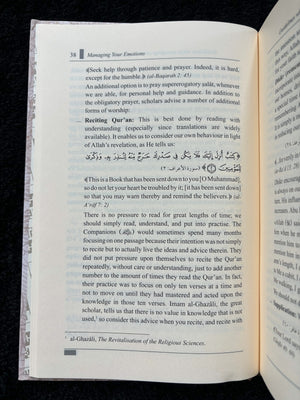 38 Managing Your Emotions
﴾Seek help through patience and prayer. Indeed, it is hard,
except for the humble.﴿ (al-Baqarah 2: 45)
An additional option is to pray supererogatory salât, whenever
we are able, for personal help and guidance. In addition to
the obligatory prayer, scholars advise a number of additional
forms of worship:
Reciting Qur'an: This is best done by reading with
understanding (especially since translations are widely
available). It enables us to consider our own behaviour in light
of Allah's revelation, as He tells us:
﴿كِتَٰبٌ أُنزِلَ إِلَيْكَ فَلَا يَكُن فِي صَدْرِكَ حَرَجٌ مِّنْهُ لِتُنذِرَ بِهِۦ وَذِكْرَىٰ
لِلْمُؤْمِنِينَ ۝﴾ (سورة الأعراف: ٢)
﴾This is a Book that has been sent down to you [O Muhammad],
so do not let your heart be troubled by it; [it has been sent down]
so that you may warn thereby and remind the believers.﴿ (al-
A'râf 7: 2)
There is no pressure to read for great lengths of time; we
should simply read, understand, and put into practise. The
Companions would sometimes spend many months
focusing on one passage because their intention was not simply
to recite but to actually live the ideas and advice therein. They
did not put pressure upon themselves to recite the Qur'an
repeatedly, without care or understanding, just to add another
number to the amount of times they read the Qur'an. In fact,
their practice was to focus on only ten verses at a time and
not to move on until they had mastered and acted upon the
knowledge in those ten verses. Imam al-Ghazâli, the great
scholar, tells us that there is no value in knowledge that is not
used,¹ so consider this advice when you recite, and recite with
¹ al-Ghazâli, The Revitalisation of the Religious Sciences.